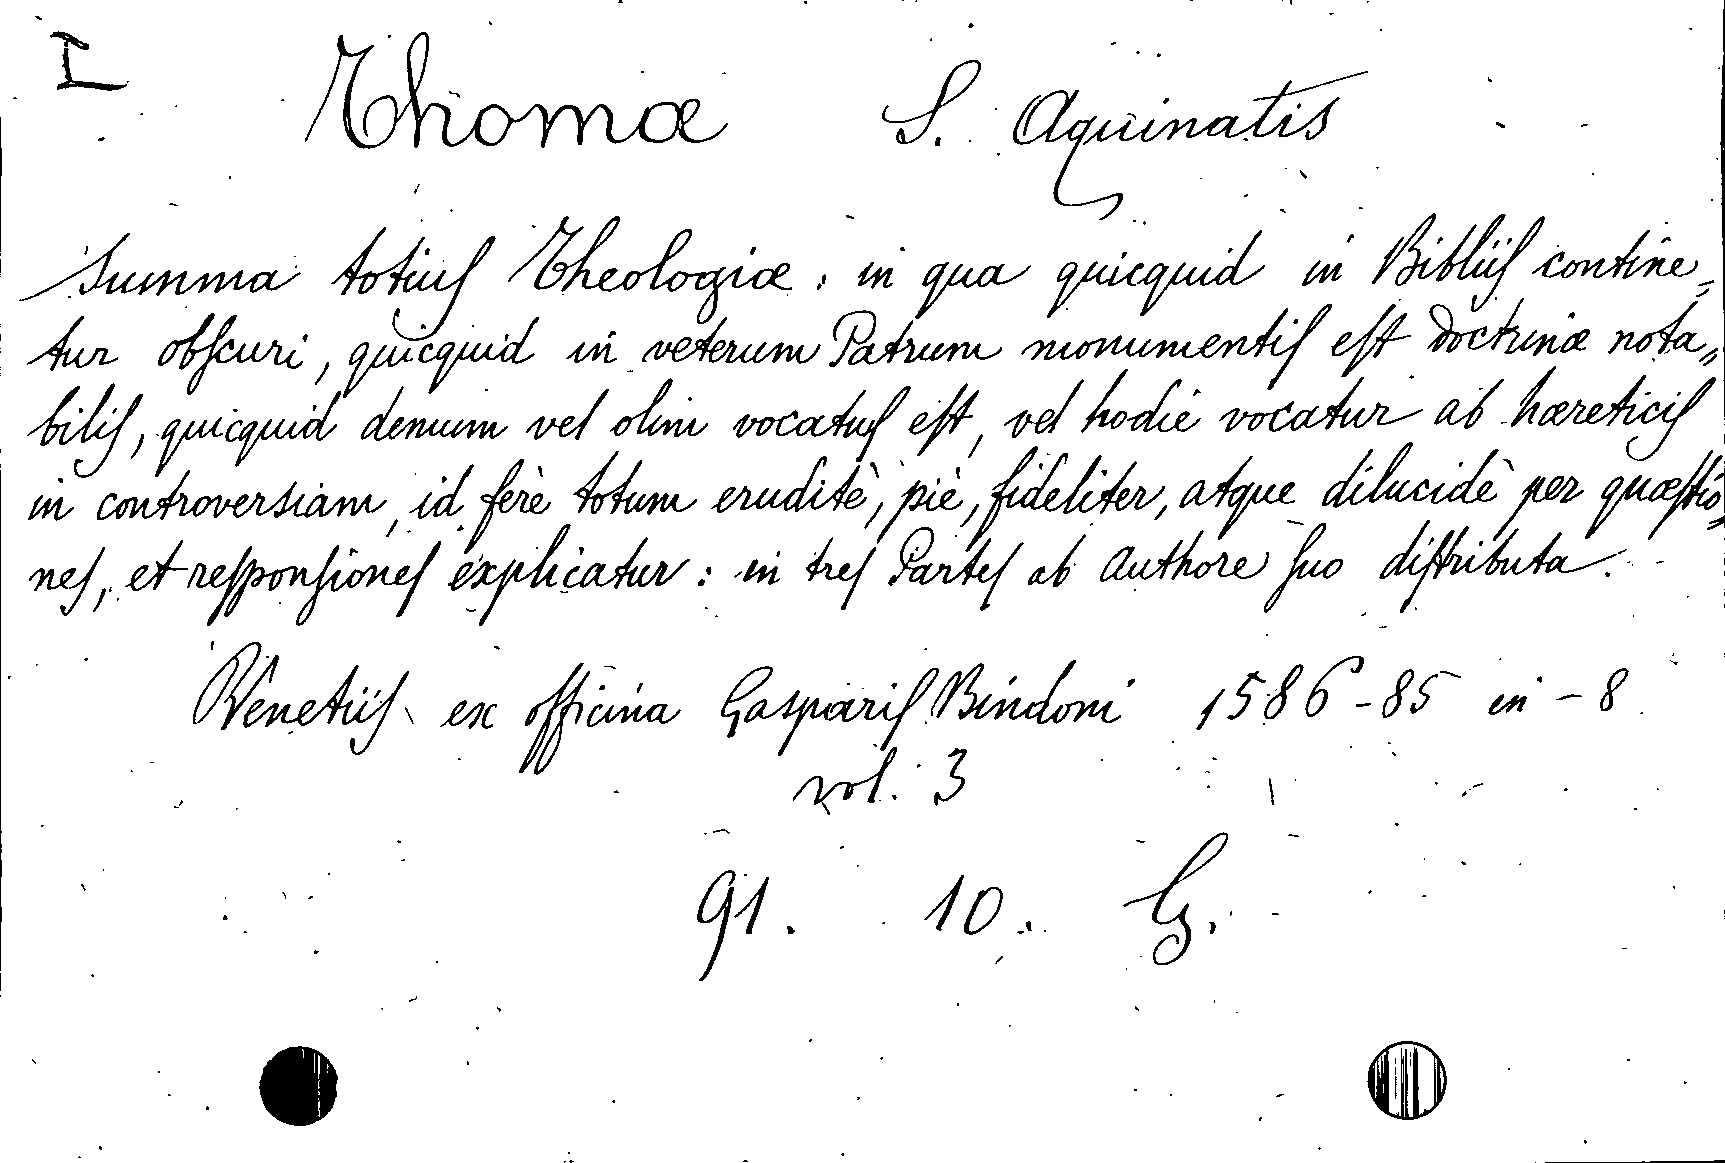 I
Thomæ S. Aquinatis
Summa totius Theologiæ: in qua quicquid in Bibliis contine„
tur obscuri, quicquid in veterum Patrum monumentis est doctrinæ nota„
bilis, quicquid denum vel olim vocatus est, vel hodie vocatur ab hæreticis
in controversiam, id ferè totum eruditè, piè, fideliter, atque dilucidè per quæstio„
nes, et responsiones explicatur: in tres Partes ab Authore suo distributa.
Venetiis ex officina Gasparis Bindoni 1586-85 in-8
vol. 3
91. 10. G.